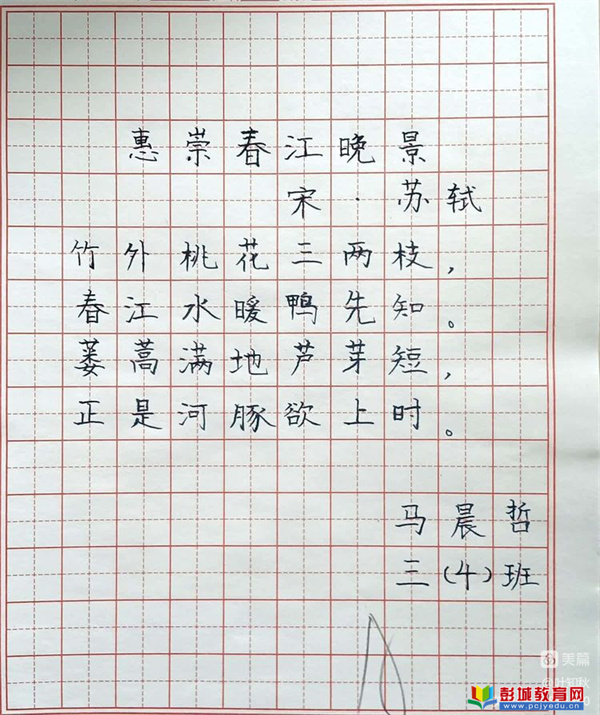 惠崇春江晚景
宋·苏轼
竹外桃花三两枝，
春江水暖鸭先知。
蒌蒿满地芦芽短，
正是河豚欲上时。
马晨哲
三(4)班
美篇
@叶知秋
彭城教育网
www.pcjyedu.cn